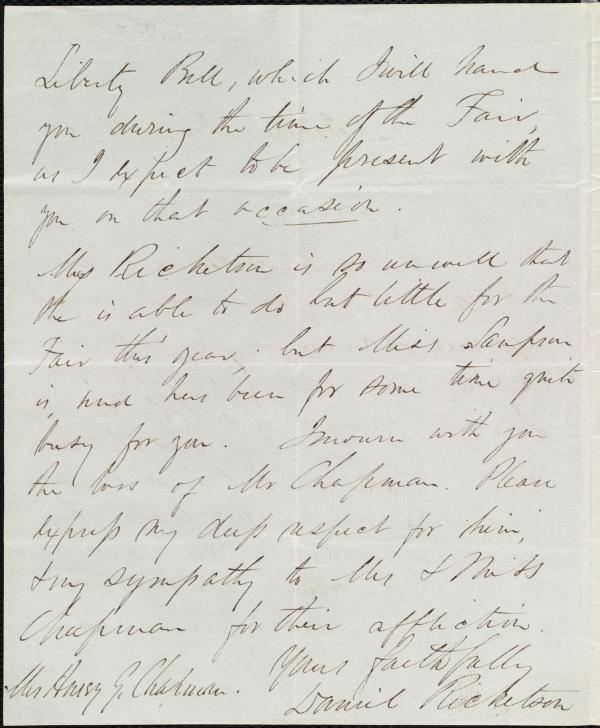 Liberty Bell, which I will hand
you during the time of the Fair,
as I expect to be present with
you on that occasion.
Mrs Ricketson is so unwell that
she is able to do but little for the
Fair this year, but Miss Sampson
is, and has been for some time quite
busy for you. I mourn with you
the loss of Mr Chapman. Please
express my deep respect for him,
& my sympathy to Mrs & Miss
Chapman for their affliction.
Yours faithfully
Daniel Ricketson
Mrs Henry G. Chapman.